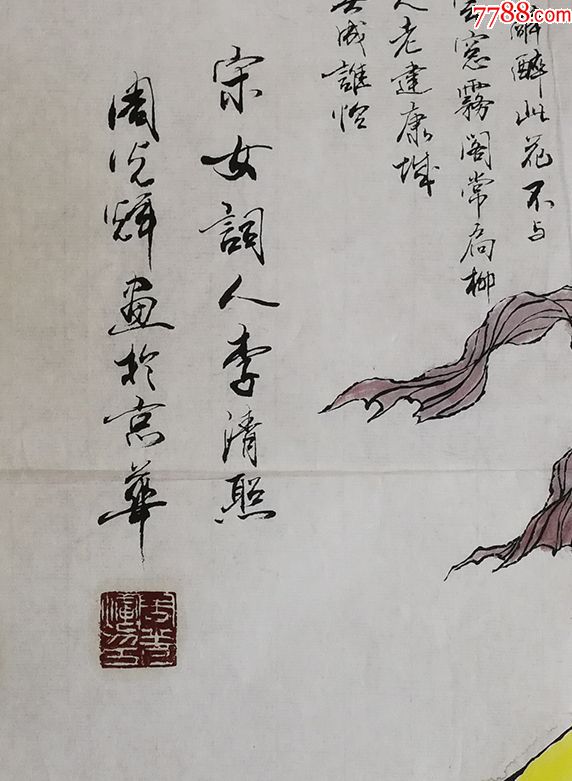 7788.com
醉此花不与
窓雾阁常扃柳
老建康城
成誰怜
宗女詞人李清照
周光輝画於京華